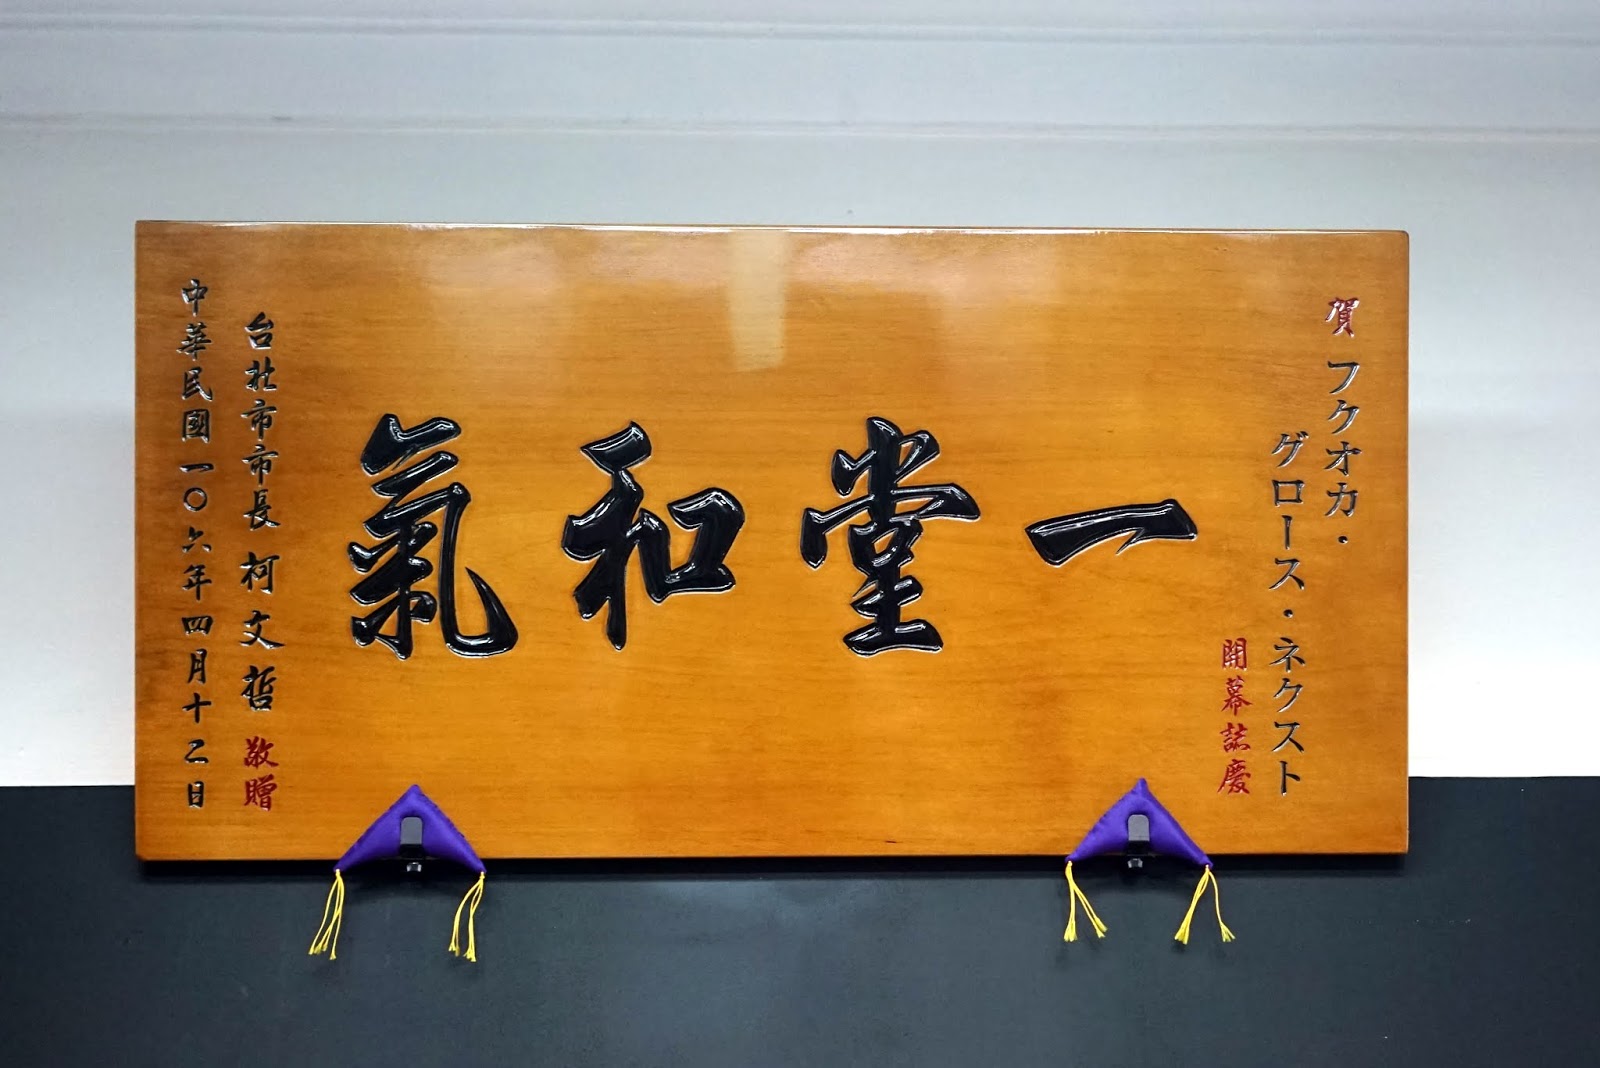 賀 フクオカ・
グロース・ネクスト
開幕誌慶
一堂和氣
台北市市長 柯文哲 敬贈
中華民國一〇六年四月十二日